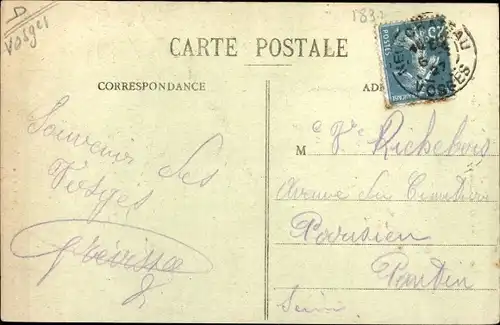 D
Vosges
183
CARTE POSTALE
CORRESPONDANCE
AD
NEUFCHATEAU
VOSGES
POSTES
25
Souvenir des
Vosges
M
Avenue du Cimetière
Parisien
Pantin
Seine